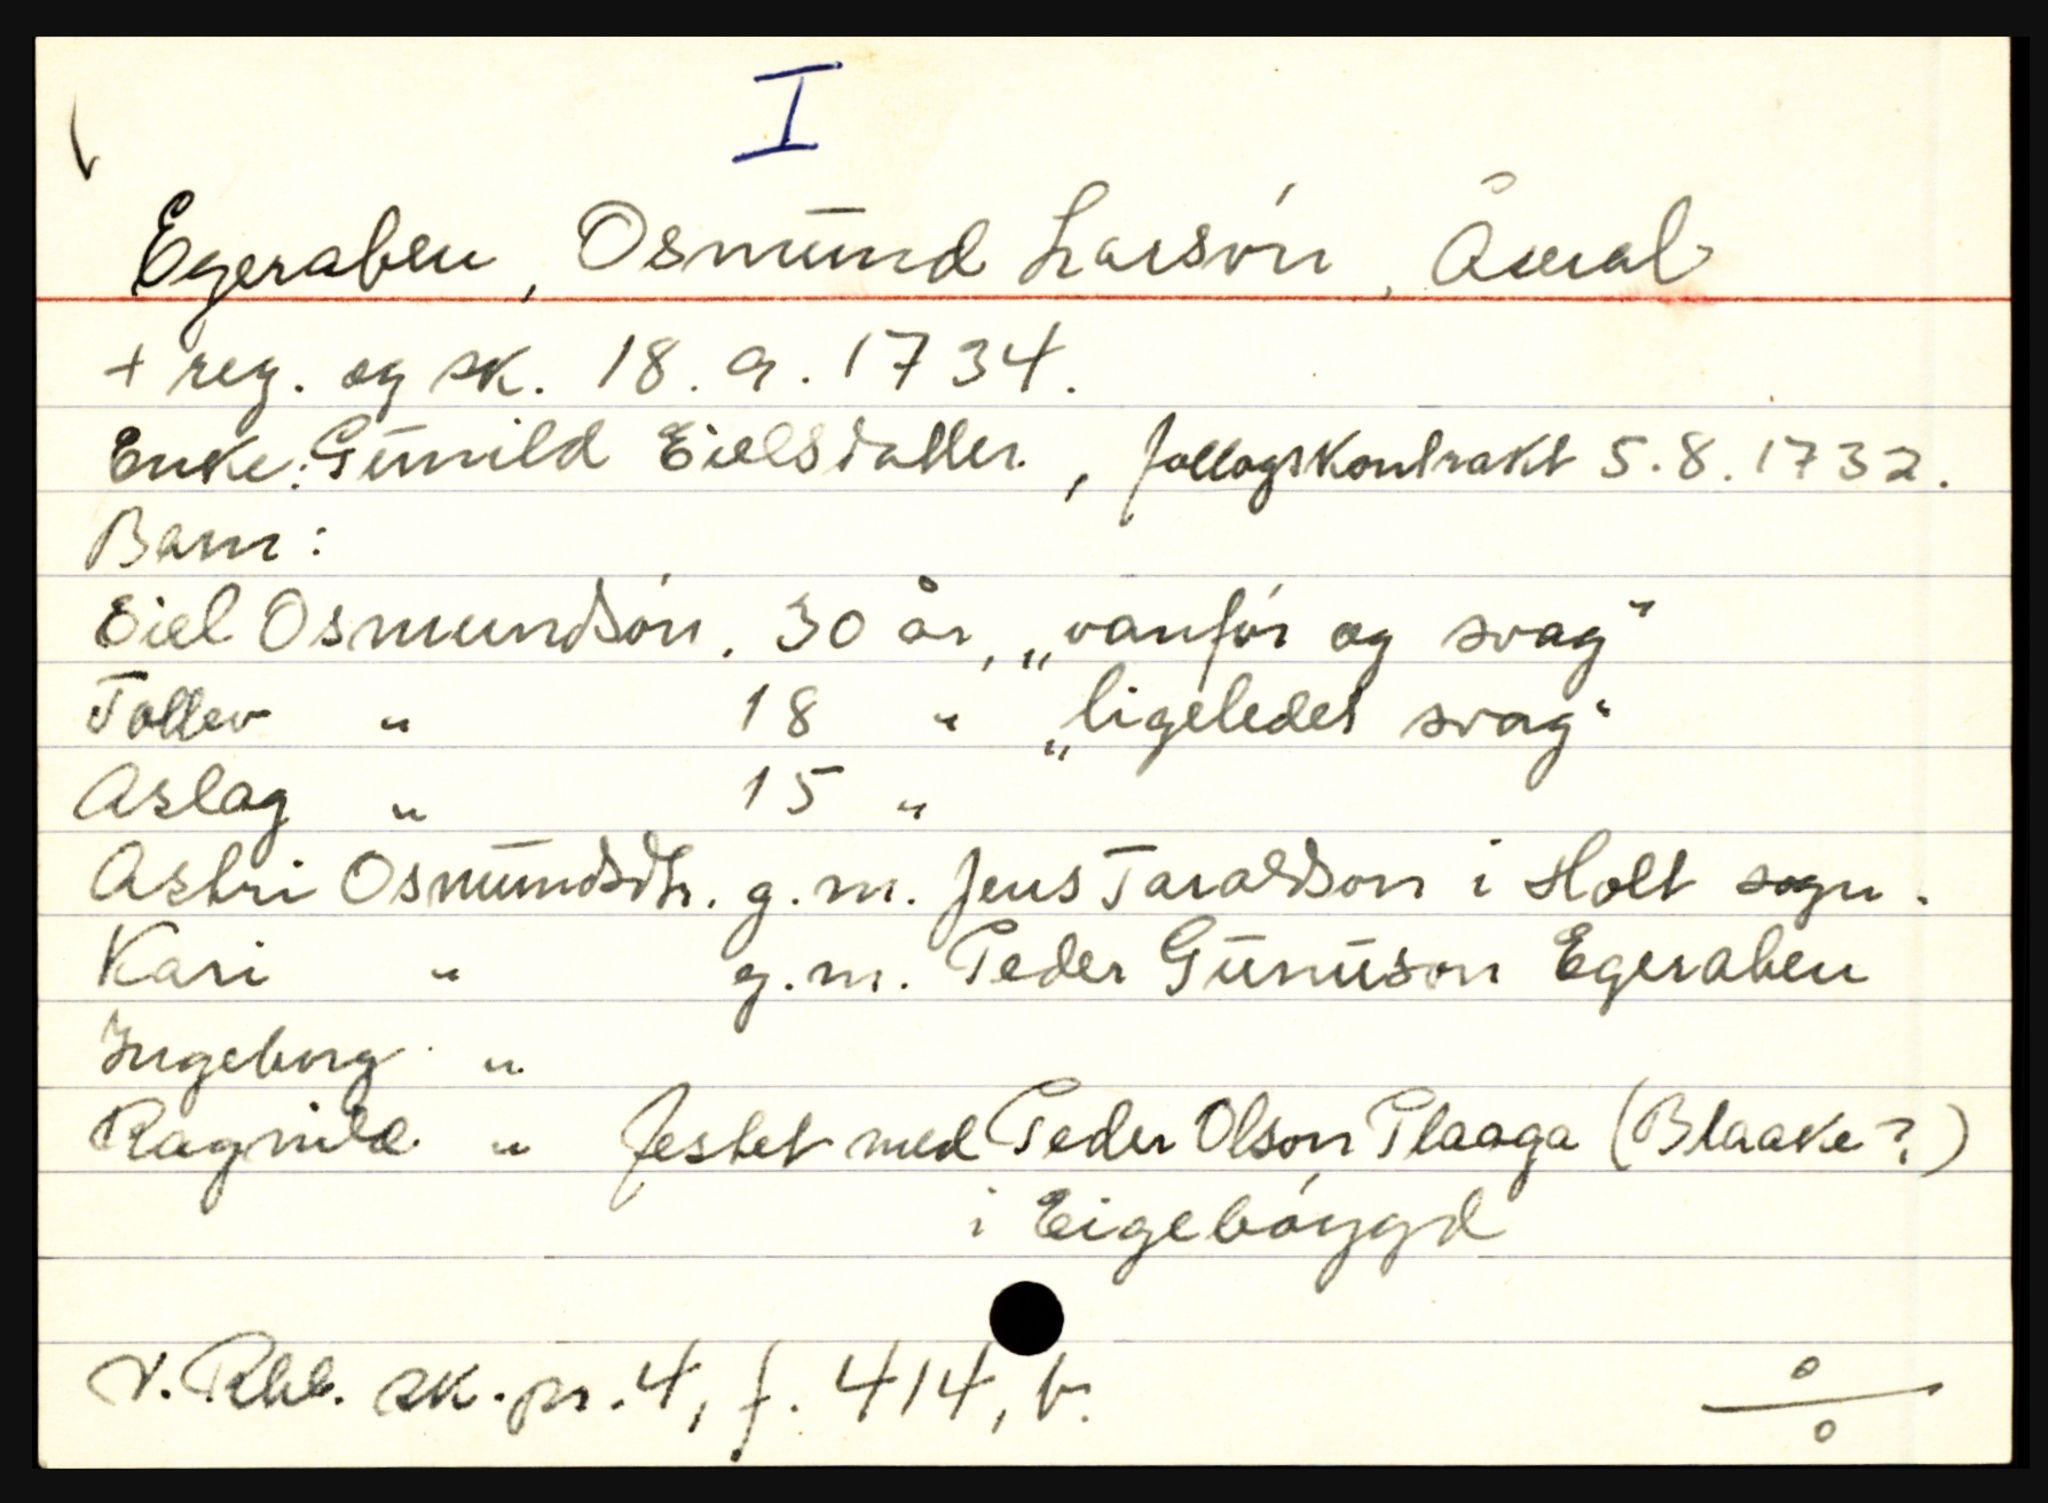 I
Egeraben, Osmund Larsón, Åmal
+ reg. og sk. 18.9.1734.
Enke: Gunild Eielsdatter, follogskontrakt 5.8.1732.
Barn:
Eiel Osmundsón, 30 år, „vanfór og svag"
Tollev " 18 " „ligeledes svag"
Aslag " 15 "
Astri Osmundsdtr. g.m. Jens Taraldson i Holt sogn.
Kari " g.m. Peder Gunuson Egeraben
Ingeborg "
Ragnild " festet med Peder Olson Plaaga (Blaake?)
i Eigebóygd
N. Rbl. sk.pr.4, f. 414, b.